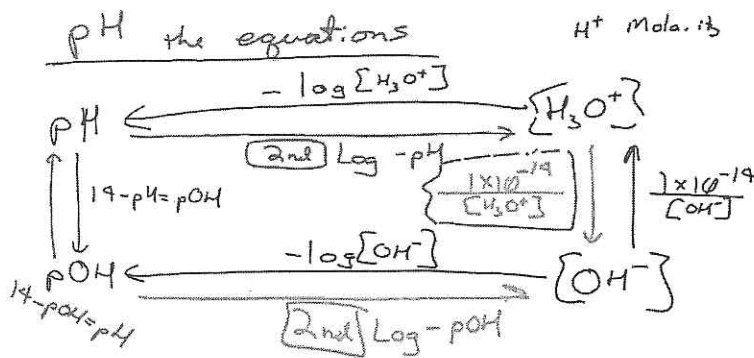 pH the equations
H⁺ Molarity
- log[H₃O⁺]
pH
[H₃O⁺]
2nd Log -pH
14-pH=pOH
1×10⁻¹⁴
[H₃O⁺]
1×10⁻¹⁴
[OH⁻]
-log[OH⁻]
pOH
[OH⁻]
14-pOH=pH
2nd Log-pOH